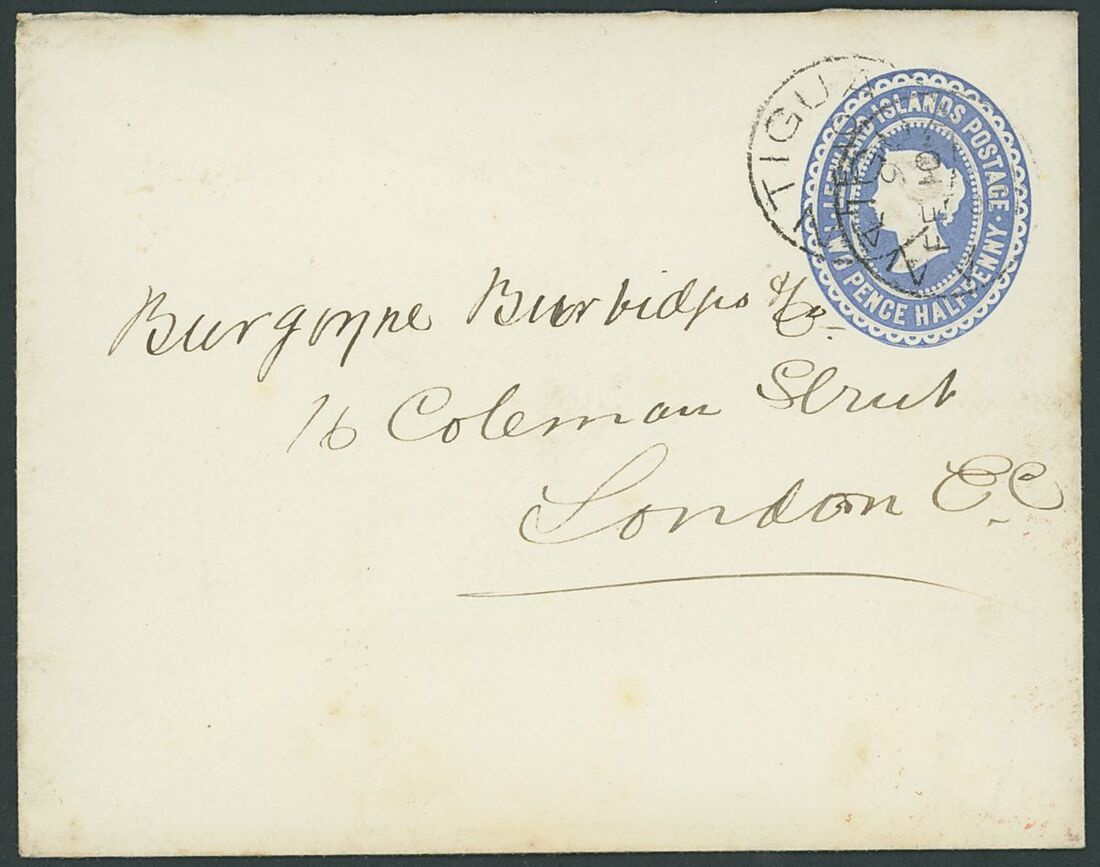 ANTIGUA
LEEWARD ISLANDS POSTAGE · TWO PENCE HALFPENNY ·
Burgoyne Burbidges & Co.
16 Coleman Street
London E.C.